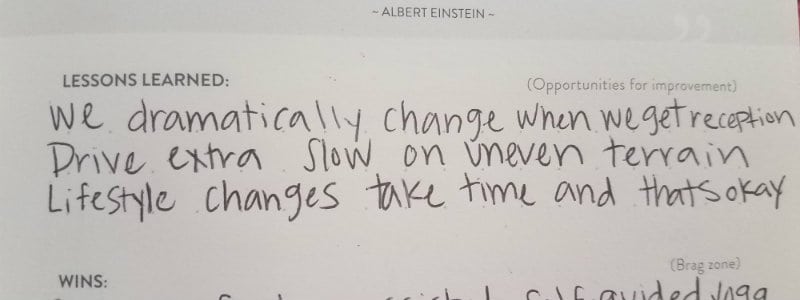 ~ ALBERT EINSTEIN ~
LESSONS LEARNED:
(Opportunities for improvement)
We dramatically change when we get reception
Drive extra slow on uneven terrain
Lifestyle changes take time and thats okay
(Brag zone)
WINS:
self guided yoga